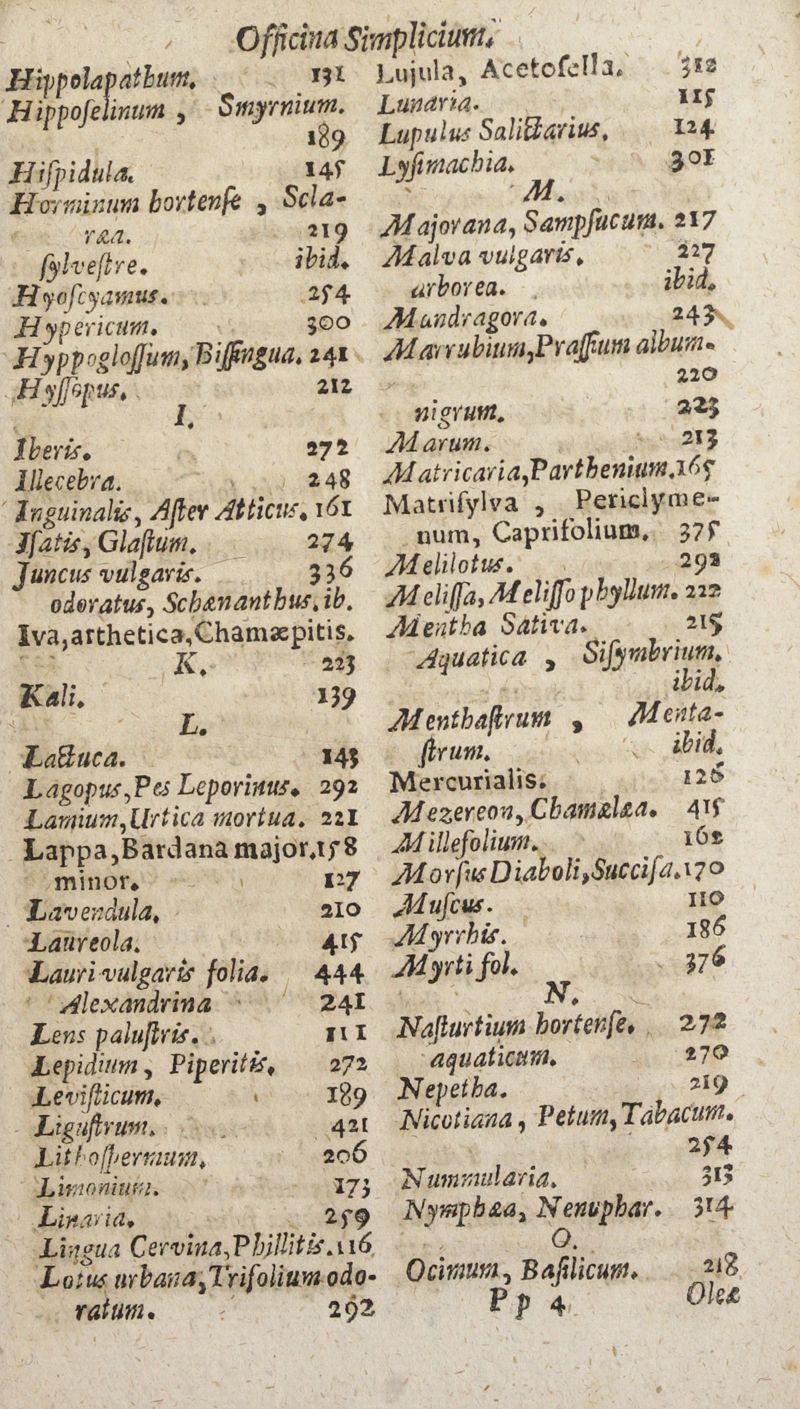 Officina Simplicium.
Hippolapathum. 131
Hippoſelinum , Smyrnium.
189
Hiſpidula. 145
Horminum hortenſe , Scla-
ræa. 219
ſylveſtre. ibid.
Hyoſcyamus. 254
Hypericum. 300
Hyppogloſſum, Biſlingua. 241
Hyſſopus. 212
I.
Iberis. 272
Illecebra. 248
Inguinalis, After Atticus. 161
Iſatis, Glaſtum. 274
Juncus vulgaris. 336
odoratus, Schænanthus. ib.
Iva, arthetica, Chamæpitis.
223
K.
Kali. 139
L.
Lactuca. 143
Lagopus, Pes Leporinus. 292
Lamium, Urtica mortua. 221
Lappa, Bardana major. 158
minor. 127
Lavendula. 210
Laureola. 415
Lauri vulgaris folia. 444
Alexandrina 241
Lens paluſtris. 111
Lepidium, Piperitis. 272
Leviſticum. 189
Liguſtrum. 421
Lithoſpermum. 206
Limonium. 173
Linaria. 259
Lingua Cervina, Phillitis. 116
Lotus urbana, Trifolium odo-
ratum. 292
Lujula, Acetoſella. 312
Lunaria. 115
Lupulus Salictarius. 124
Lyſimachia. 301
M.
Majorana, Sampſucum. 217
Malva vulgaris. 227
arborea. ibid.
Mandragora. 243
Marrubium, Praſſium album.
220
nigrum. 223
Marum. 213
Matricaria, Parthenium. 165
Matriſylva , Periclyme-
num, Caprifolium. 375
Melilotus. 292
Meliſſa, Meliſſophyllum. 222
Mentha Sativa. 215
Aquatica , Siſymbrium.
ibid.
Menthaſtrum , Menta-
ſtrum. ibid.
Mercurialis. 126
Mezereon, Chamælæa. 415
Millefolium. 162
Morſus Diaboli, Succiſa. 170
Muſcus. 110
Myrrhis. 186
Myrti fol. 376
N.
Naſturtium hortenſe. 272
aquaticum. 270
Nepetha. 219
Nicotiana, Petum, Tabacum.
254
Nummularia. 313
Nymphæa, Nenuphar. 314
O.
Ocimum, Baſilicum. 218
Pp 4
Oleæ